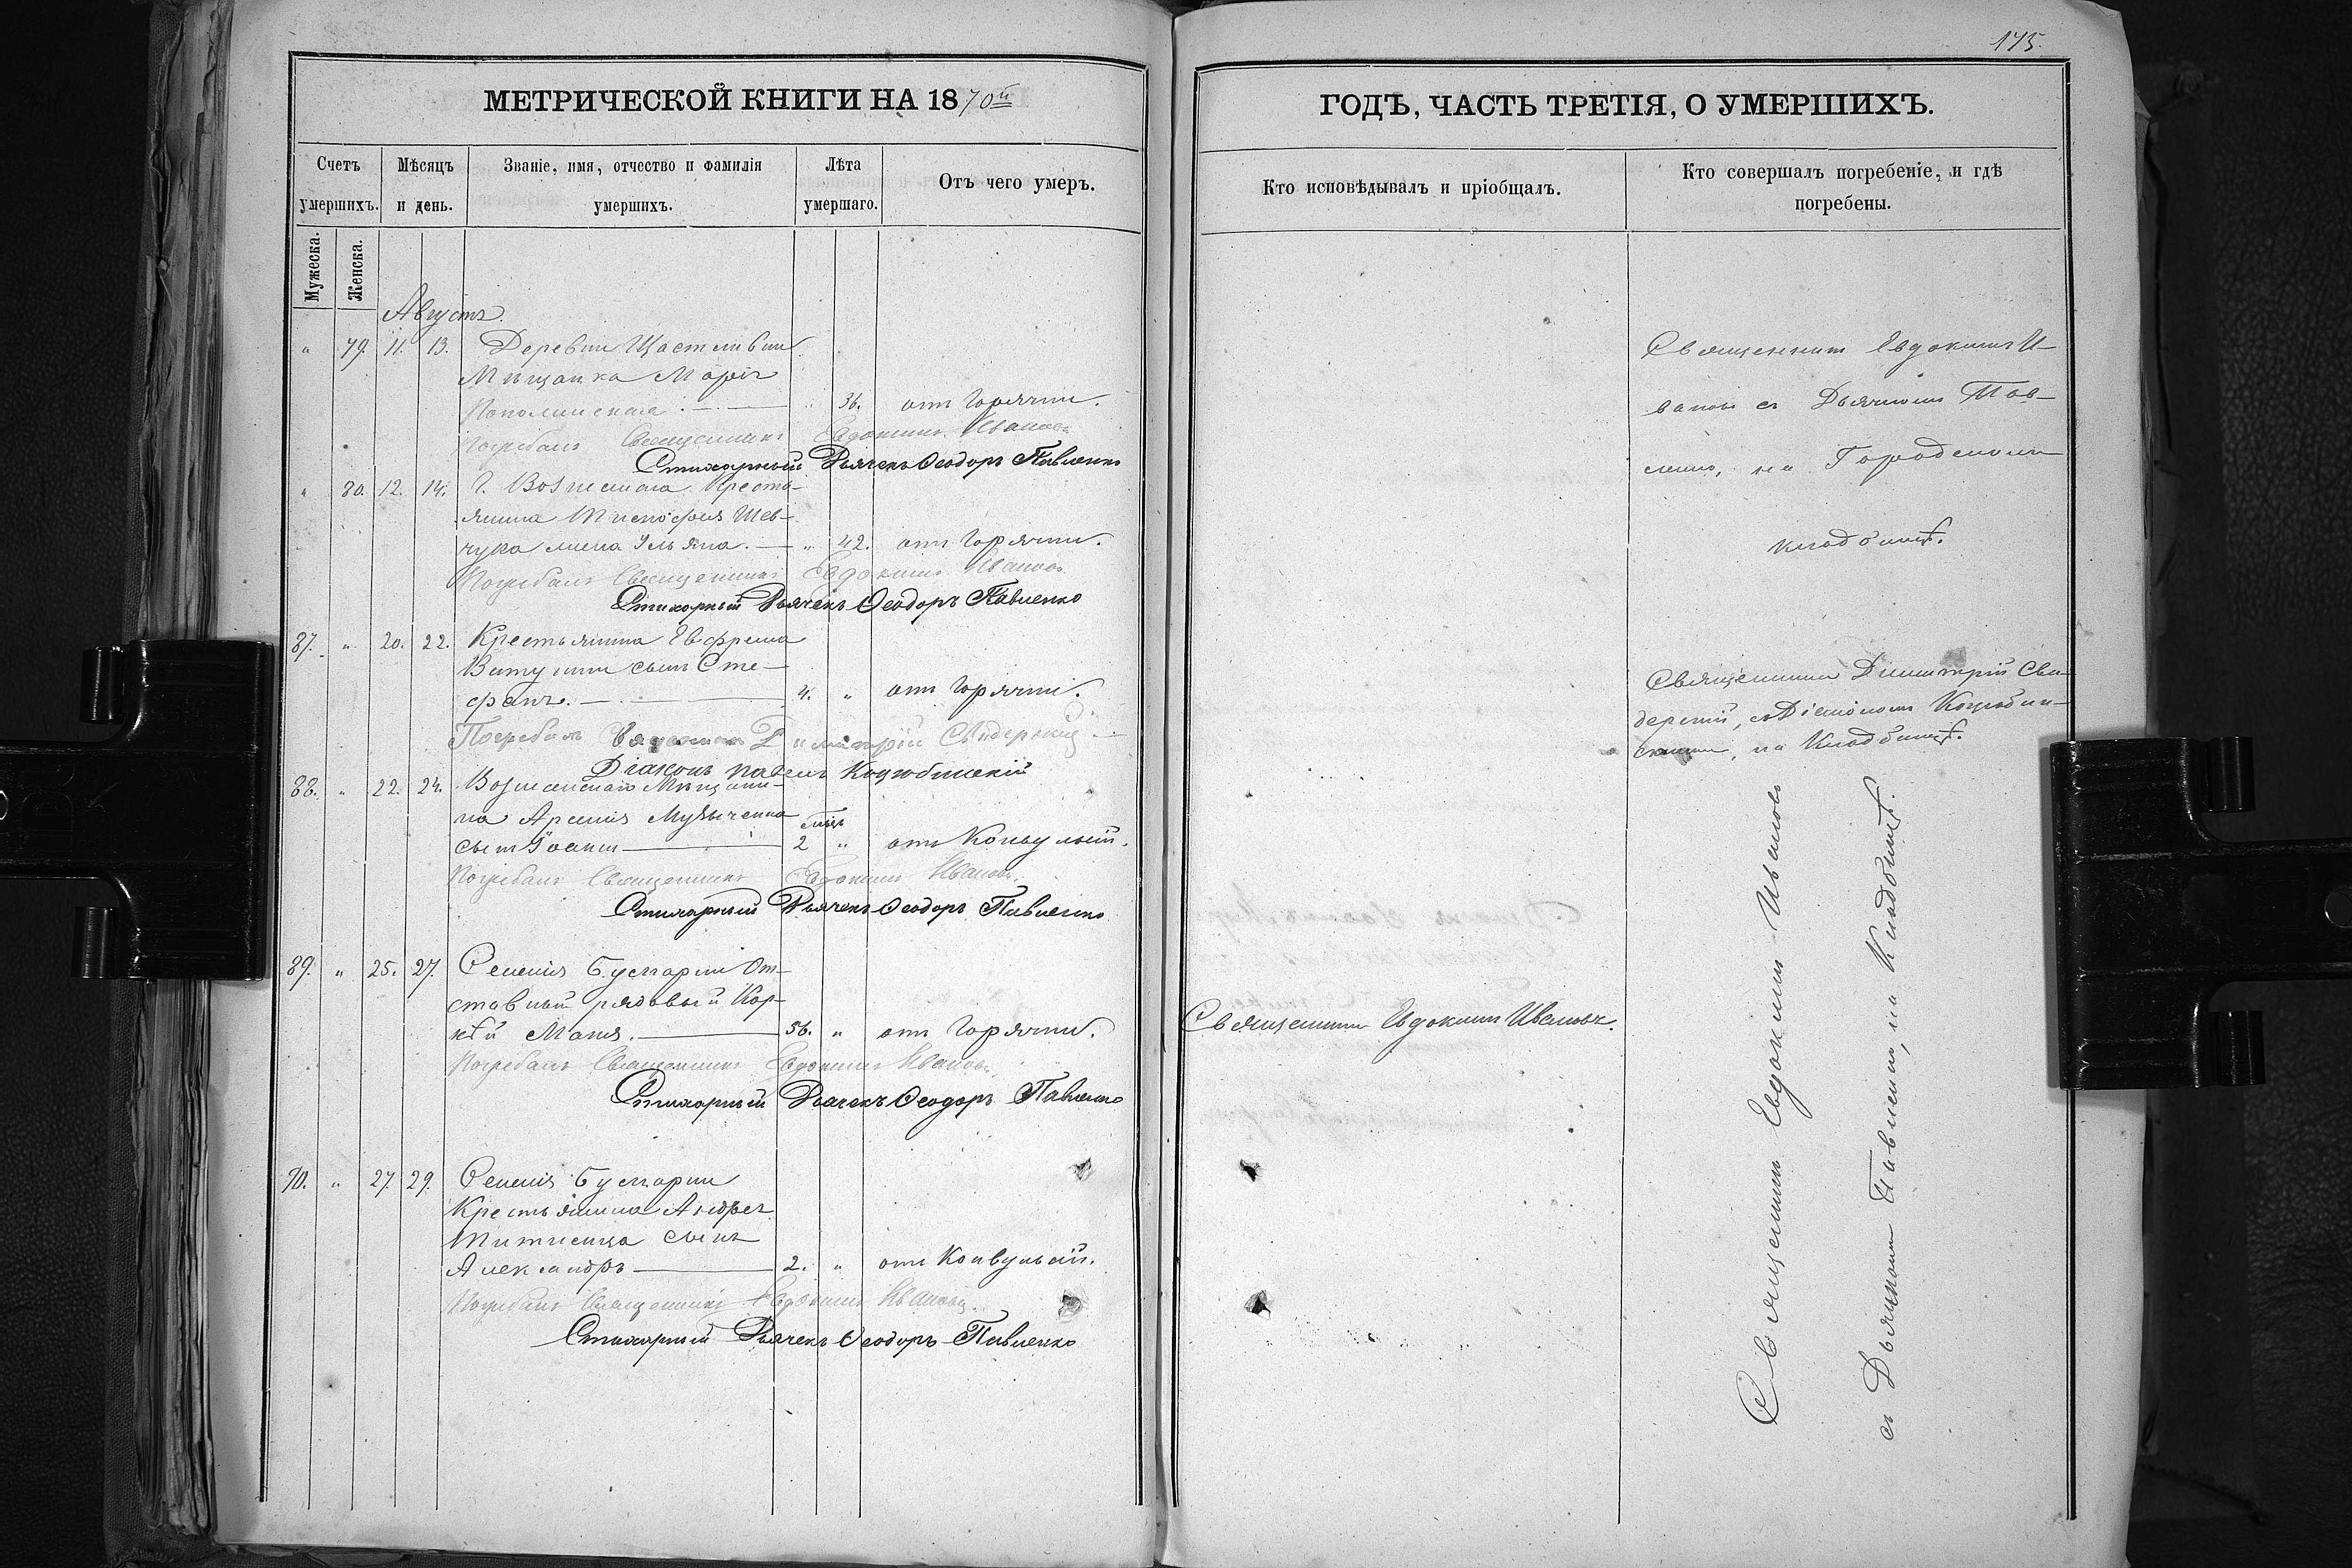 175.
МЕТРИЧЕСКОЙ КНИГИ НА 1870й
Счетъ умершихъ.
Мѣсяцъ и день.
Званіе, имя, отчество и фамилія умершихъ.
Лѣта умершаго.
Отъ чего умеръ.
Мужеска.
Женска.
Августъ.
" 79. 11. 13. Деревни Щастливки
Мѣщанка Марія
" 36. отъ Горячки.
Погребалъ Священникъ Евдокимъ Ивановъ
Стихарный Дьячекъ Ѳеодоръ Павленко
" 80. 12. 14. Г. Вознесенска Кресть-
янина Тимофея Шев-
чука жена Ульяна. " 42. отъ Горячки.
Погребалъ Священникъ Евдокимъ Ивановъ
Стихарный Дьячекъ Ѳеодоръ Павленко
87. " 20. 22. Крестьянина Евфрема
сынъ Сте-
фанъ. 4. " отъ Горячки.
Погребалъ Священникъ Димитрій Свидерскій
Діаконъ Павелъ Коцюбинскій
88. " 22. 24. Вознесенскаго Мѣщани-
на Арсенія Музыченка
сынъ Іоаннъ 2 " отъ Конвульсій.
Погребалъ Священникъ Евдокимъ Ивановъ
Стихарный Дьячекъ Ѳеодоръ Павленко
89. " 25. 27. Селенія Булгарки От-
ставный рядовый Кор-
нѣй 56. " отъ Горячки.
Погребалъ Священникъ Евдокимъ Ивановъ
Стихарный Дьячекъ Ѳеодоръ Павленко
90. " 27. 29. Селенія Булгарки
Крестьянина Андрея
сынъ
Александръ 2. " отъ Конвульсій.
Погребалъ Священникъ Евдокимъ Ивановъ
Стихарный Дьячекъ Ѳеодоръ Павленко
ГОДЪ, ЧАСТЬ ТРЕТІЯ, О УМЕРШИХЪ.
Кто исповѣдывалъ и пріобщалъ.
Кто совершалъ погребеніе, и гдѣ погребены.
Священникъ Евдокимъ И-
вановъ съ Дьячкомъ Пав-
ленко, на Городскомъ
кладбищѣ.
Священникъ Димитрій Сви-
дерскій, съ Діакономъ Коцюбин-
скимъ, на Кладбищѣ.
Священникъ Евдокимъ Ивановъ.
Священникъ Евдокимъ Ивановъ
съ Дьячкомъ Павленко, на Кладбищѣ.